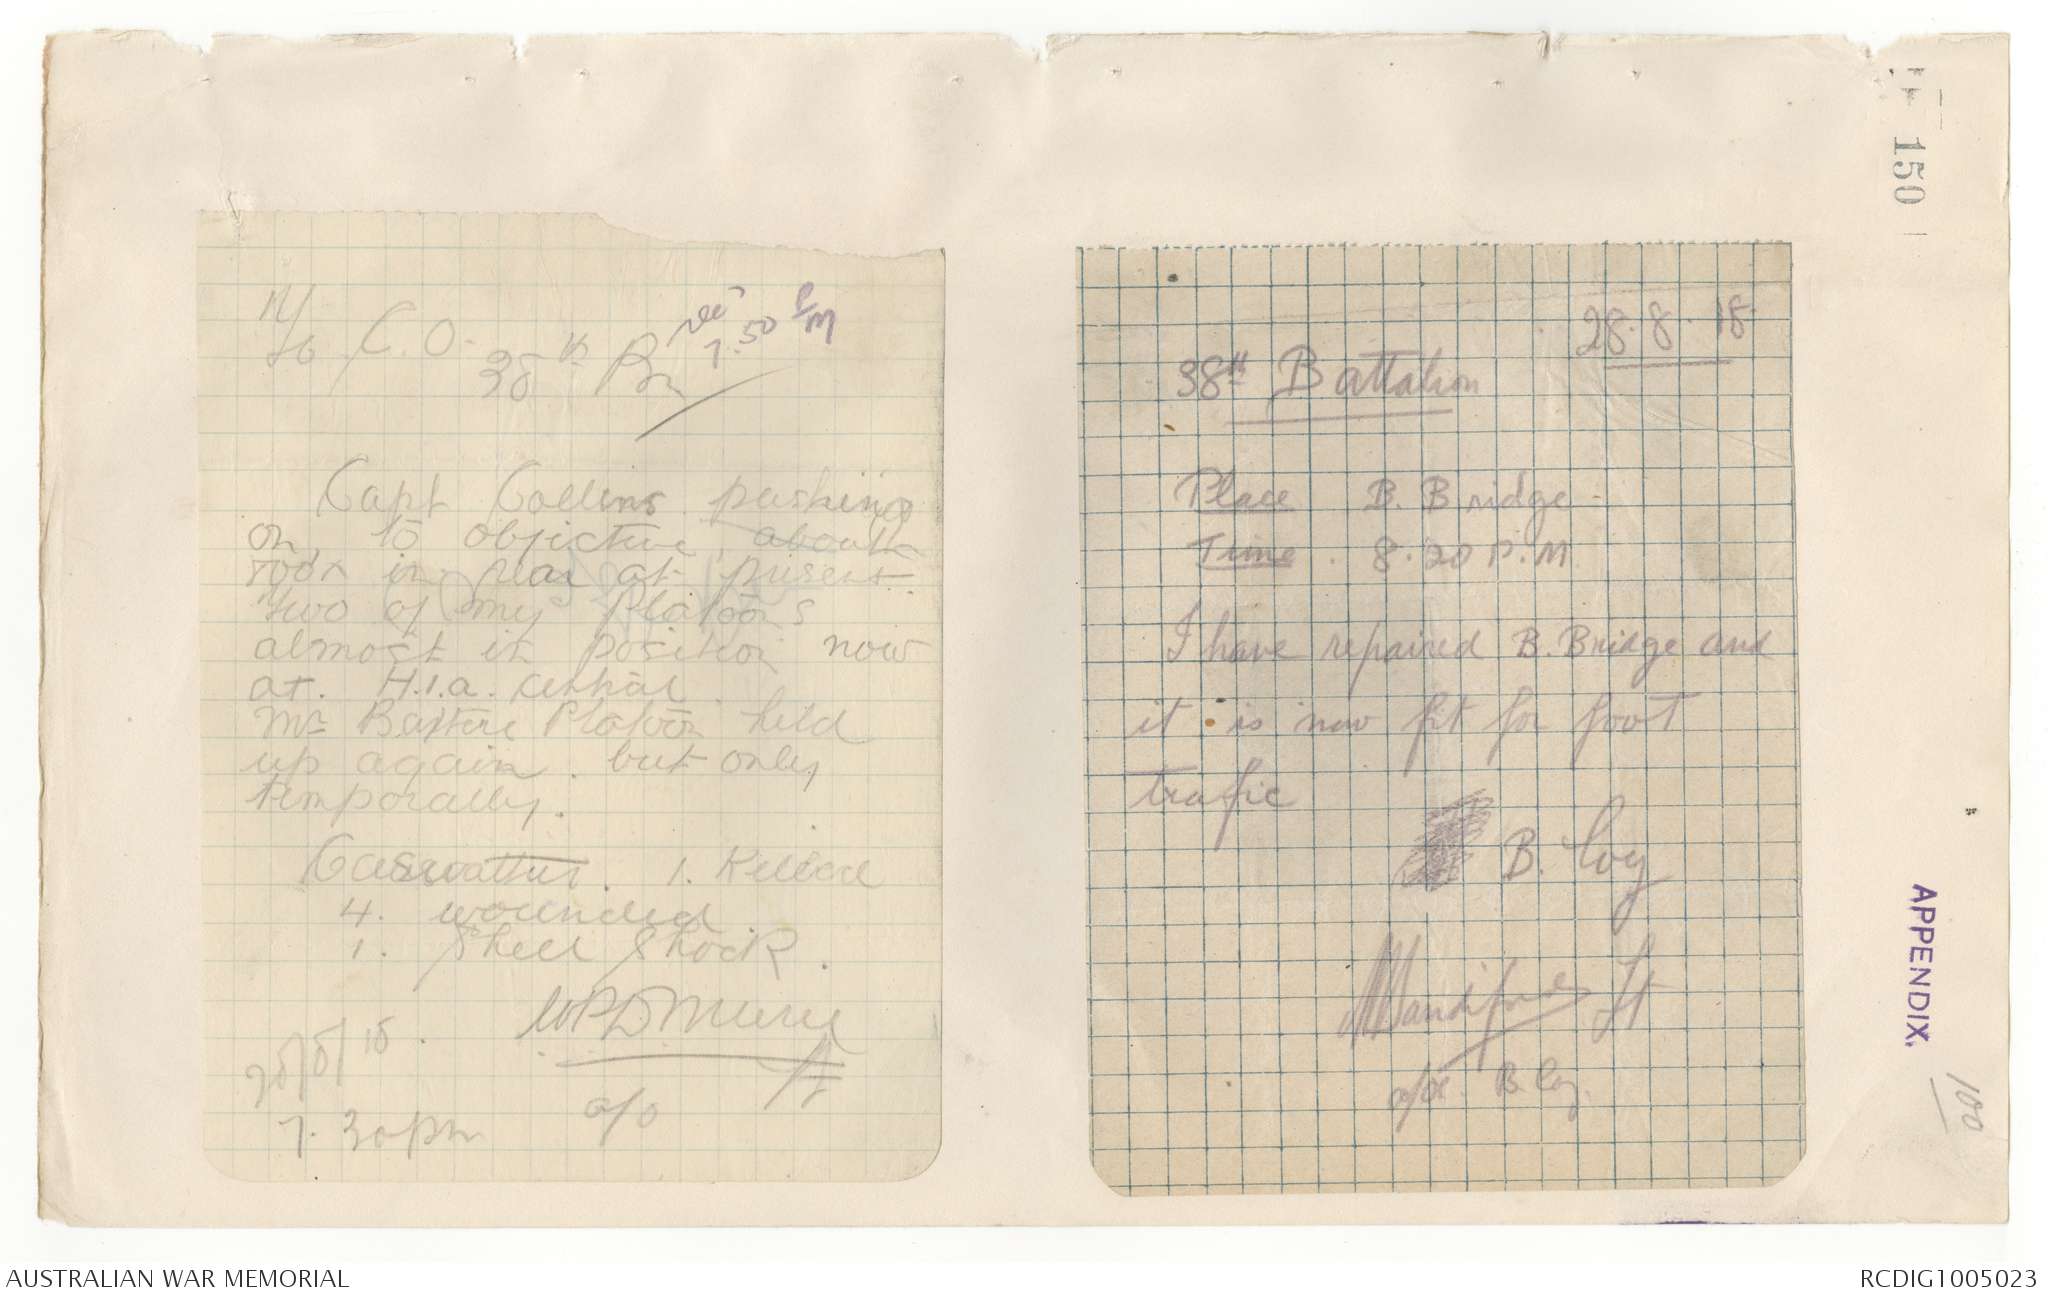 C.O. 38th Bn
rec 7.50 P/M
Capt Collins pushing
on to objective about
700x in rear at present
two of my Platoons
almost in position now
at H.1.a. central
Mr Baxters Platoon held
up again. but only
temporally.
1. Killed
4. wounded
1. Shell Shock.
28/8/18.
7.30pm
28.8.18.
38th Battalion
Place B. Bridge
Time. 8.20 P.M
I have repaired B. Bridge and
it is now fit for foot
trafic
B. Coy
Lt
B Coy.
150
APPENDIX.
100
AUSTRALIAN WAR MEMORIAL
RCDIG1005023